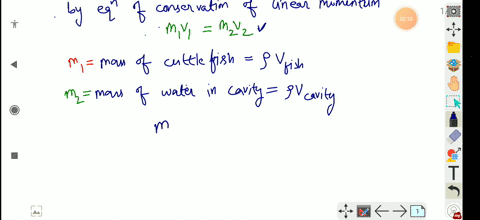 by eqⁿ of conservation of linear momentum
m₁v₁ = m₂v₂ ✓
m₁ = mass of cuttlefish = ρ V fish
m₂ = mass of water in cavity = ρ V cavity
m